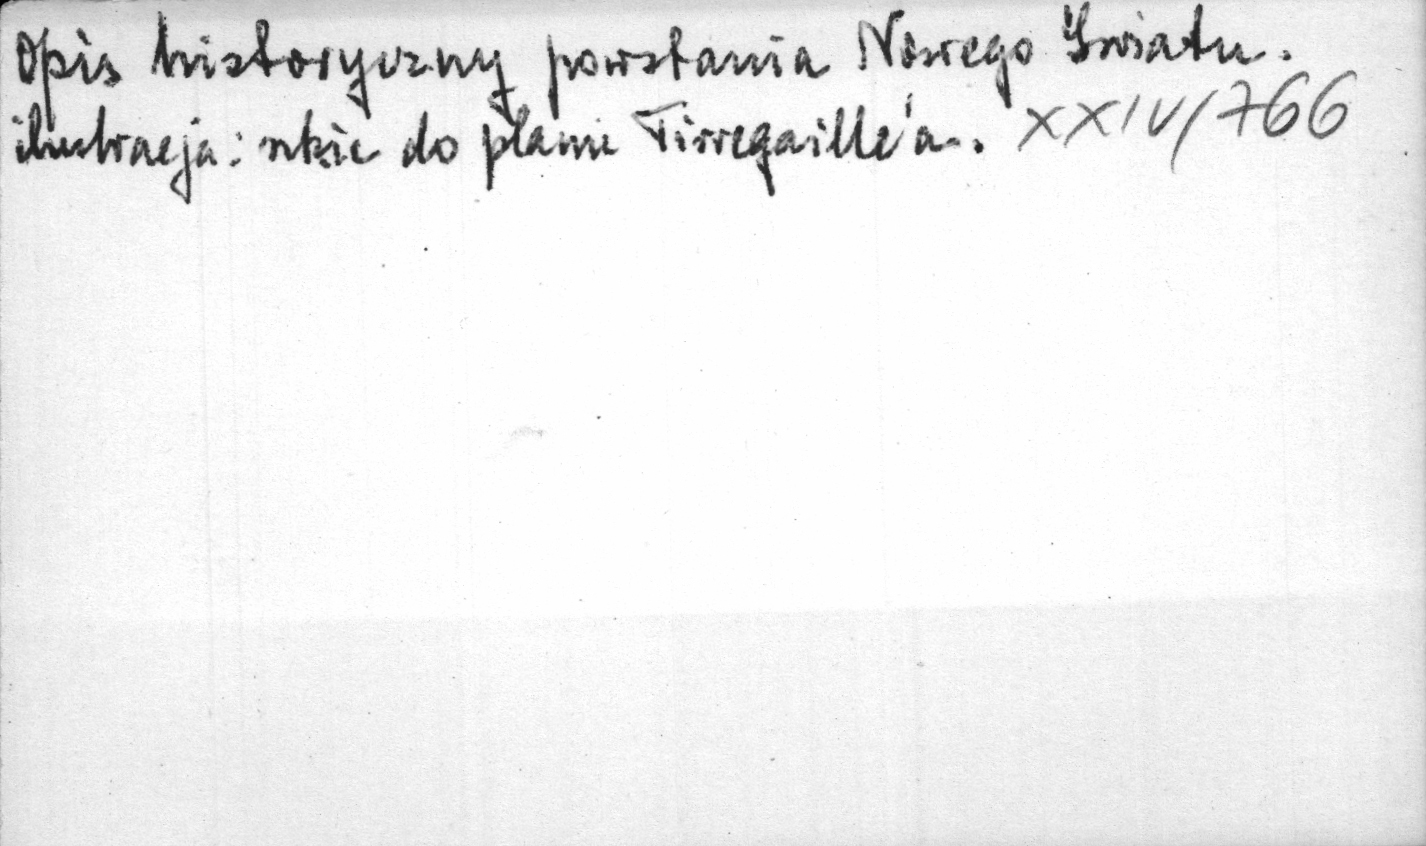 Opis historyczny powstania Nowego Światu.
ilustracja: szkic do planu Tirregaille'a. XXIV/766